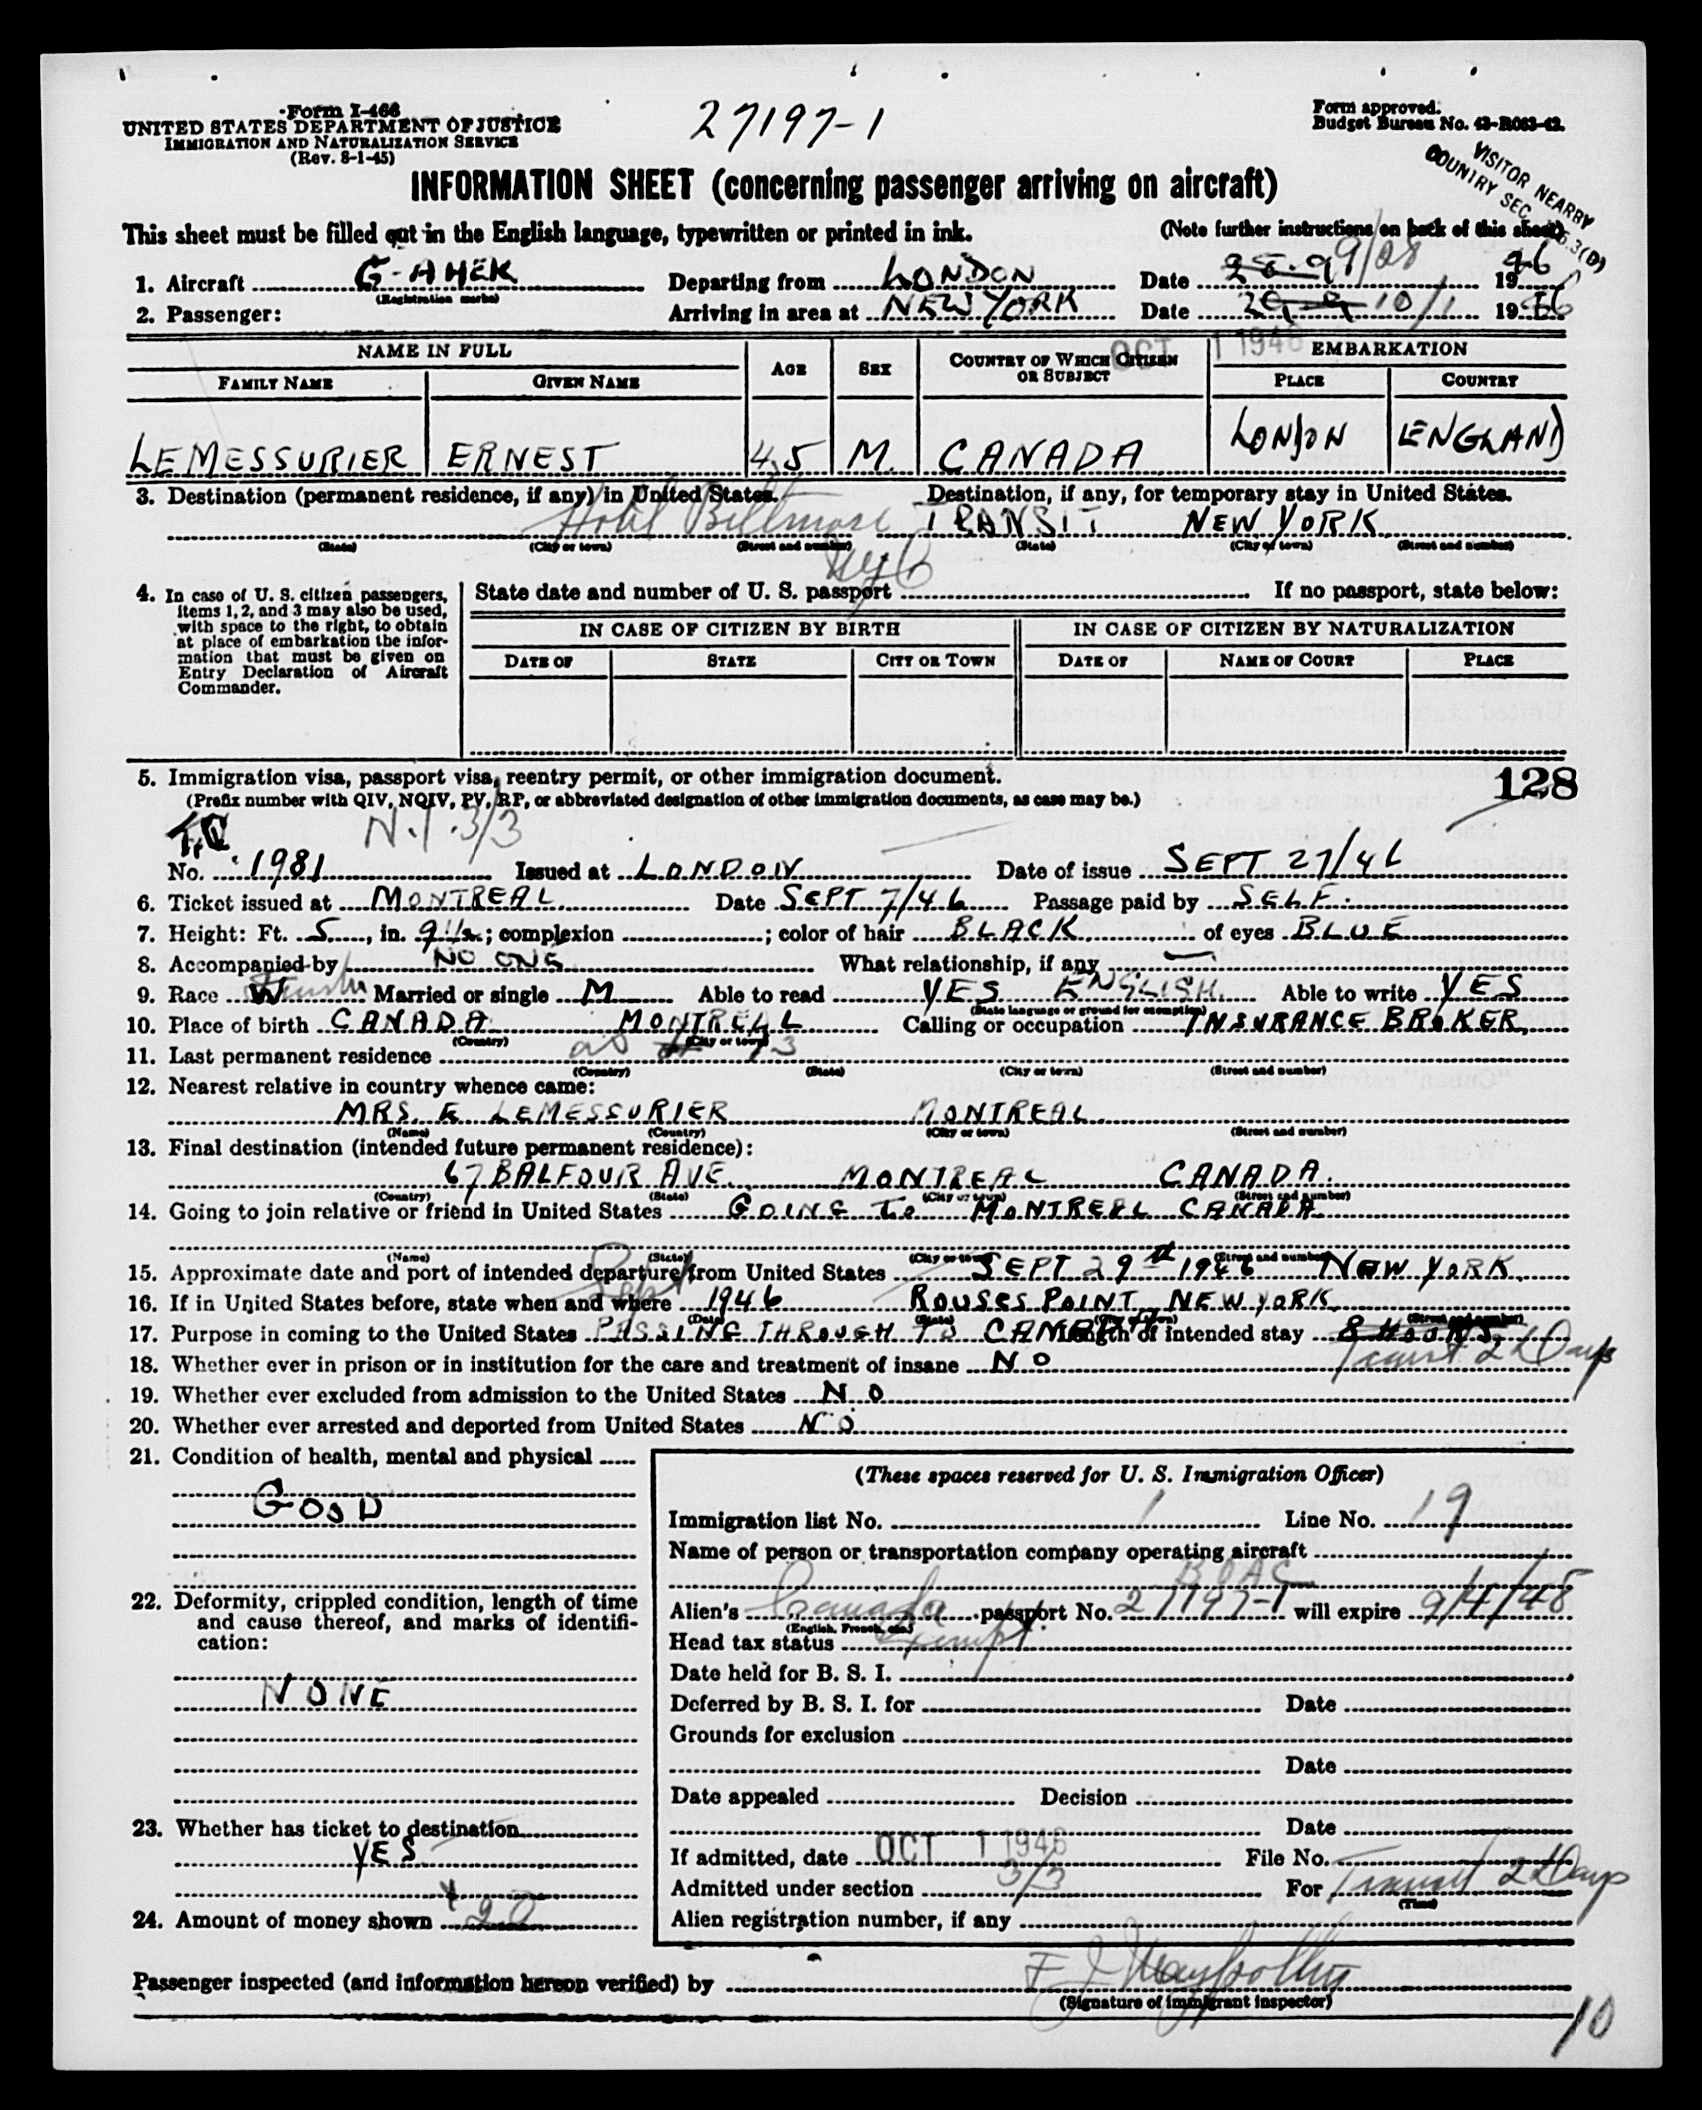 Form I-466
27197-1
Form approved.
UNITED STATES DEPARTMENT OF JUSTICE
Budget Bureau No. 43-R063-42.
IMMIGRATION AND NATURALIZATION SERVICE
(Rev. 8-1-45)
VISITOR NEARBY
COUNTRY SEC. 3(D)
INFORMATION SHEET (concerning passenger arriving on aircraft)
This sheet must be filled out in the English language, typewritten or printed in ink. (Note further instructions on back of this sheet)
1. Aircraft G-AHEK Departing from LONDON Date 9/28 1946
(Registration marks)
2. Passenger: Arriving in area at NEW YORK Date 10/1 1946
OCT 1 1946
NAME IN FULL AGE SEX COUNTRY OF WHICH CITIZEN OR SUBJECT EMBARKATION
FAMILY NAME GIVEN NAME PLACE COUNTRY
LEMESSURIER ERNEST 45 M. CANADA LONDON ENGLAND
3. Destination (permanent residence, if any) in United States. Destination, if any, for temporary stay in United States.
Hotel Biltmore TRANSIT NEW YORK
(State) (City or town) (Street and number) (State) (City or town) (Street and number)
NYC
4. In case of U. S. citizen passengers, items 1, 2, and 3 may also be used, with space to the right, to obtain at place of embarkation the information that must be given on Entry Declaration of Aircraft Commander.
State date and number of U. S. passport If no passport, state below:
IN CASE OF CITIZEN BY BIRTH IN CASE OF CITIZEN BY NATURALIZATION
DATE OF STATE CITY OR TOWN DATE OF NAME OF COURT PLACE
5. Immigration visa, passport visa, reentry permit, or other immigration document. 128
(Prefix number with QIV, NQIV, PV, RP, or abbreviated designation of other immigration documents, as case may be.)
N.I. 3/3
No. 1981 Issued at LONDON Date of issue SEPT 27/46
6. Ticket issued at MONTREAL Date SEPT 7/46 Passage paid by SELF.
7. Height: Ft. 5, in. 9 1/2; complexion ; color of hair BLACK of eyes BLUE
8. Accompanied by NO ONE What relationship, if any —
9. Race W Married or single M Able to read YES ENGLISH. Able to write YES
(State language or ground for exemption)
10. Place of birth CANADA MONTREAL Calling or occupation INSURANCE BROKER.
(Country) (City or town)
11. Last permanent residence as 13
(Country) (State) (City or town) (Street and number)
12. Nearest relative in country whence came:
MRS. E LEMESSURIER MONTREAL.
(Name) (Country) (City or town) (Street and number)
13. Final destination (intended future permanent residence):
67 BALFOUR AVE. MONTREAL CANADA.
(Country) (State) (City or town) (Street and number)
14. Going to join relative or friend in United States GOING TO MONTREAL CANADA
(Name) (State) (City or town) (Street and number)
15. Approximate date and port of intended departure from United States SEPT 29th 1946 NEW YORK.
16. If in United States before, state when and where Sept 1946 ROUSES POINT, NEW YORK.
(Date) (State) (City or town) (Street and number)
17. Purpose in coming to the United States PASSING THROUGH TO CANADA Length of intended stay 8 HOURS.
Transit 2 Days
18. Whether ever in prison or in institution for the care and treatment of insane NO
19. Whether ever excluded from admission to the United States NO
20. Whether ever arrested and deported from United States NO
21. Condition of health, mental and physical
GOOD
22. Deformity, crippled condition, length of time and cause thereof, and marks of identification:
NONE
23. Whether has ticket to destination
YES
24. Amount of money shown 20
(These spaces reserved for U. S. Immigration Officer)
Immigration list No. 1 Line No. 19
Name of person or transportation company operating aircraft
BOAC
Alien's Canada passport No. 27197-1 will expire 9/4/48
(English, French, etc.)
Head tax status Exempt.
Date held for B. S. I.
Deferred by B. S. I. for Date
Grounds for exclusion
Date
Date appealed Decision
Date
If admitted, date OCT 1 1946 File No.
Admitted under section 3/3 For Transit 2 Days
(Time)
Alien registration number, if any
Passenger inspected (and information hereon verified) by
(Signature of immigrant inspector)
10